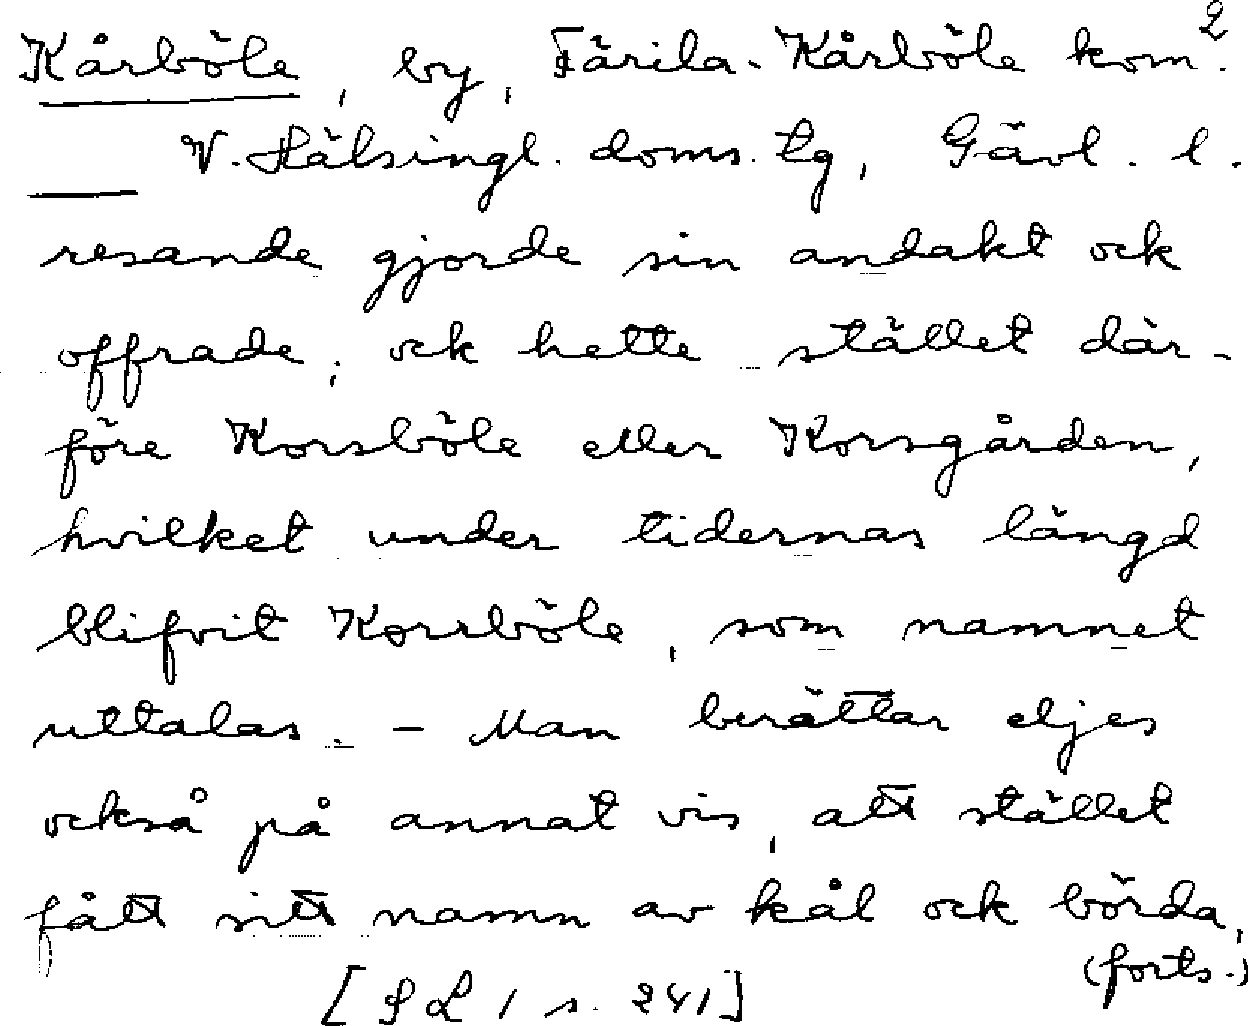 2
Kårböle, by, Färila-Kårböle kom.
V. Hälsingl. doms. tg, Gävl. l.
resande gjorde sin andakt ock
offrade; ock hette stället där-
före Korsböle eller Korsgården,
hvilket under tidernas längd
blifvit Korrböle, som namnet
uttalas. - Man berättar eljes
också på annat vis, att stället
fått sitt namn av kål ock börda,
(forts.)
[PL 1 s. 241]